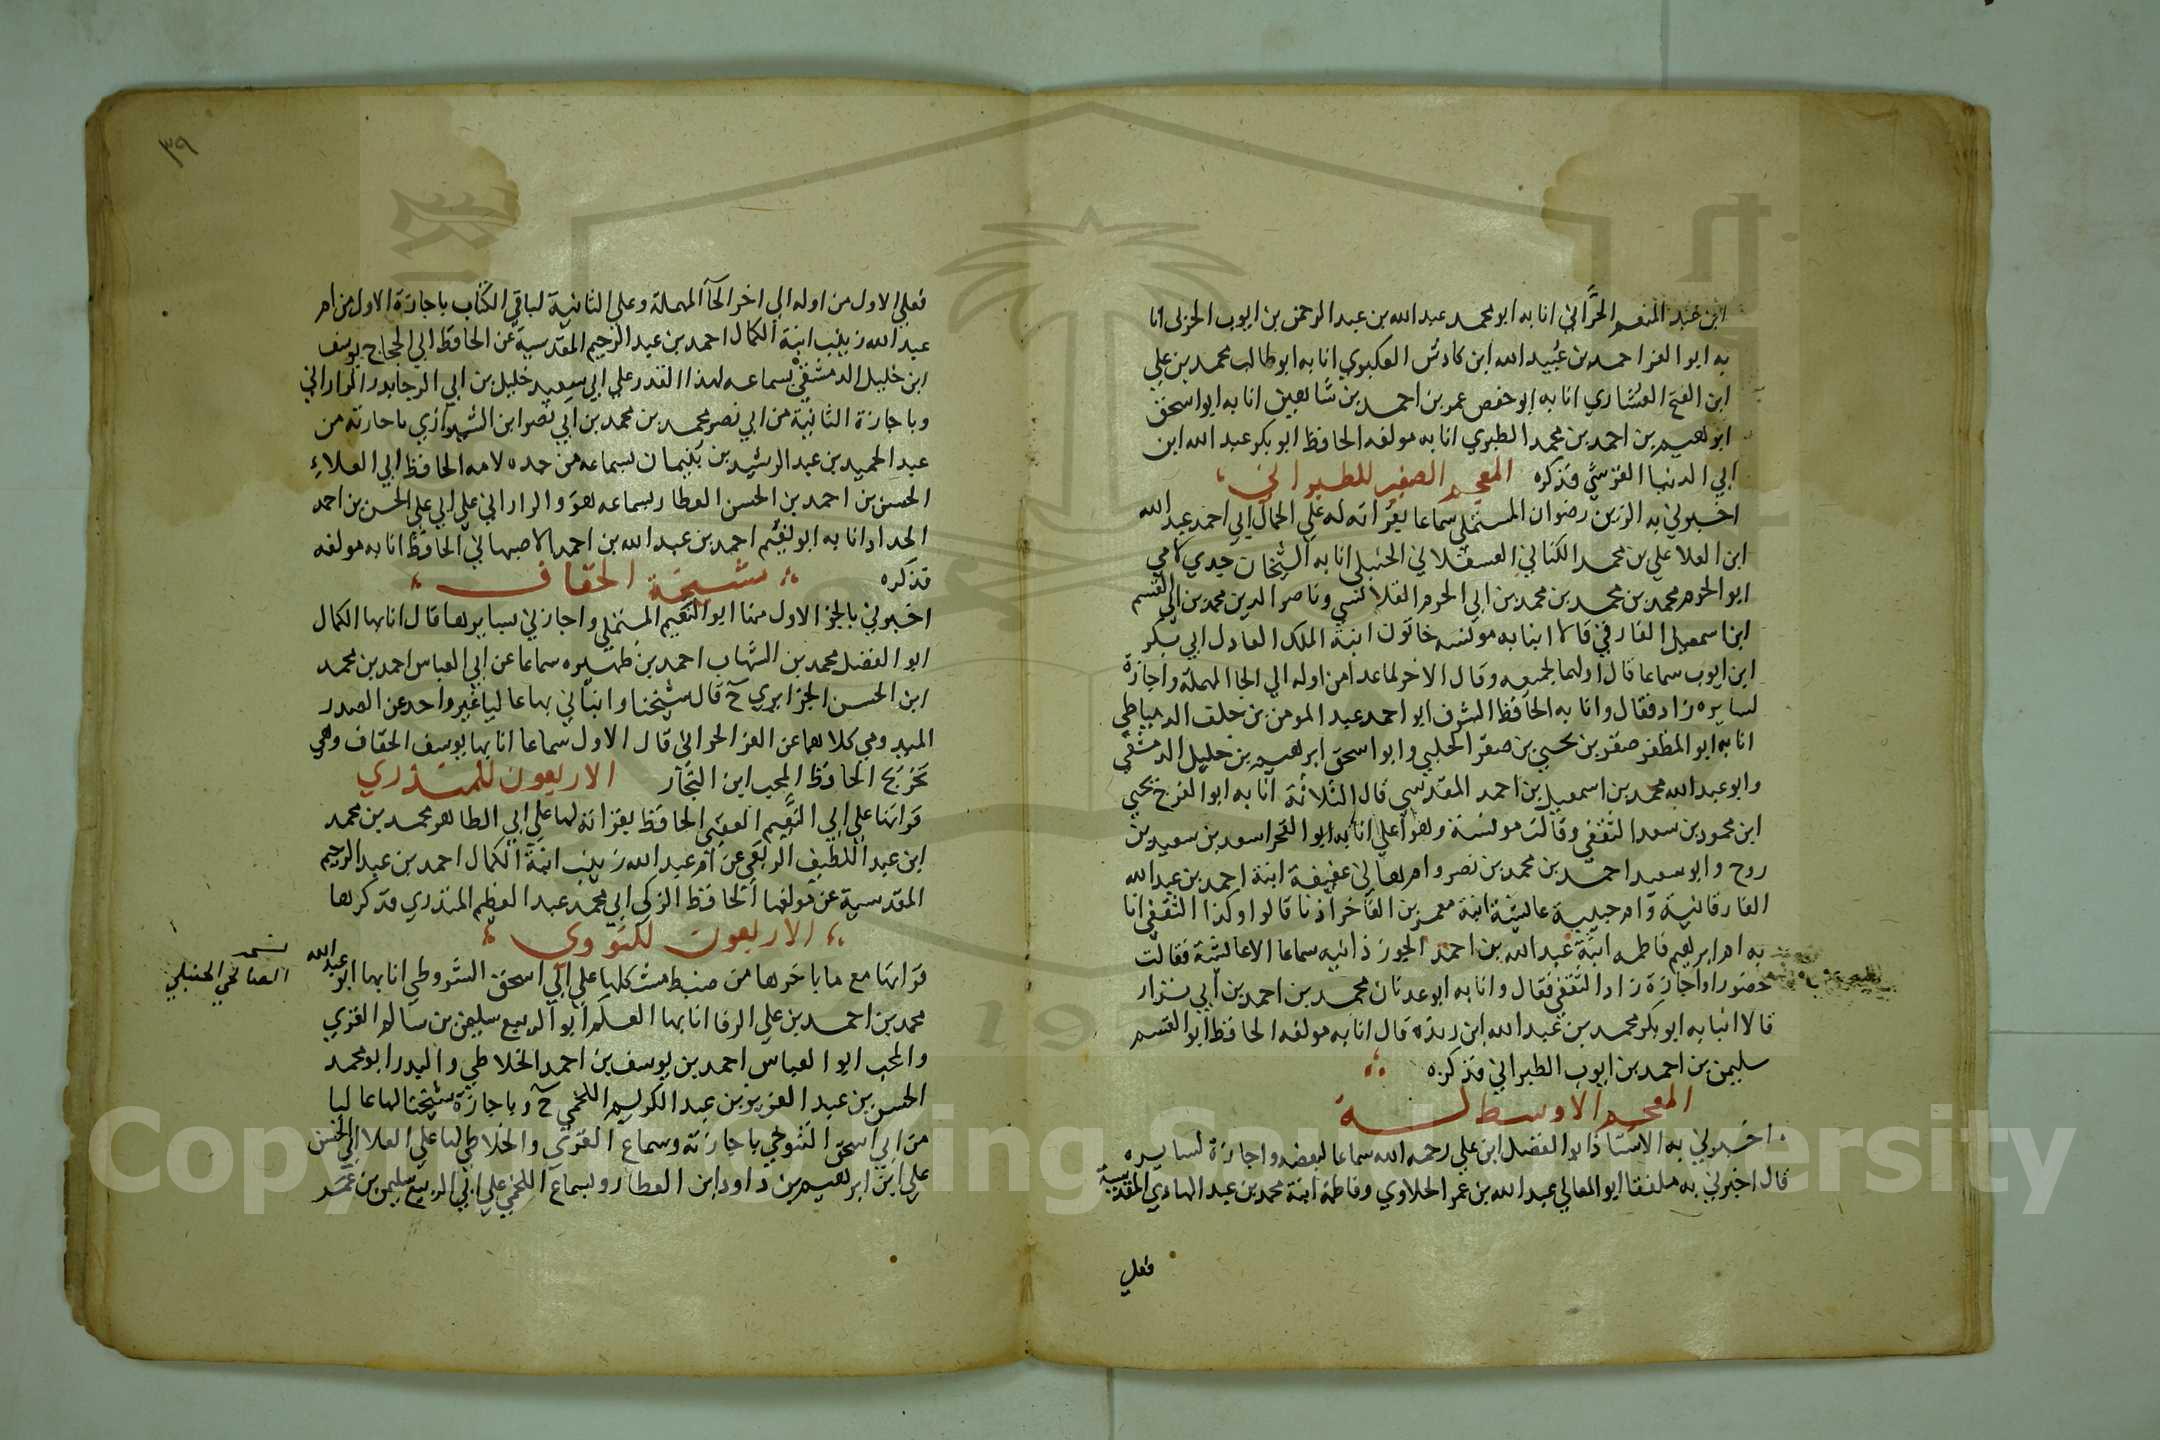 ابن عبد المنعم الحراني انا به ابو محمد عبد الله بن عبد الرحمن بن ايوب الحربي انا
به ابو العز احمد بن عبيد الله ابن كادش العكبري انا به ابو طالب محمد بن علي
ابن الفتح العشاري انا به ابو حفص عمر بن احمد بن شاهين انا به ابو اسحق
ابراهيم بن احمد بن محمد الطبري انا به مولفه الحافظ ابو بكر عبد الله ابن
ابي الدنيا القرشي فذكره المعجم الصغير للطبراني
اخبرني به الزين رضوان المستملي سماعا بقراته له علي الجمال ابي احمد عبد الله
ابن العلا علي بن محمد الكناني العسقلاني الحنبلي انا به الشيخان جدي لامي
ابو الحرم محمد بن محمد بن محمد بن ابي الحرم القلانسي وناصر الدين محمد بن ابي القسم
ابن اسمعيل الفارقي قالا انبا به مونسه خاتون ابنة الملك العادل ابي بكر
ابن ايوب سماعا قال اولهما لجميعه وقال الاخر لما عدا من اوله الي الحا المهملة واجازة
لسايره زاد فقال وانا به الحافظ الشرف ابو احمد عبد المومن بن خلف الدمياطي
انا به ابو المظفر صقر بن يحيي بن صقر الحلبي وابو اسحق ابرهيم بن خليل الدمشقي
وابو عبد الله محمد بن اسمعيل بن احمد المقدسي قال الثلاثة انا به ابو الفرج يحيي
ابن محمود بن سعد الثقفي وقالت مونسة وهو اعلي انا به ابو الفخر اسعد بن سعيد بن
روح وابو سعيد احمد بن محمد بن نصر وام هاني عفيفة ابنة احمد بن عبد الله
الفارفانية وام حبيبة عائشة ابنة معمر بن الفاخر اذنا قالوا وكذا الثقفي انا
به ام ابرهيم فاطمه ابنة عبد الله بن احمد الجوزذانيه سماعا الا عائشة فقالت
حضورا واجازة زاد الثقفي فقال وانا به ابو عدنان محمد بن احمد بن ابي نزار
قالا انبا به ابو بكر محمد بن عبد الله ابن ريذه قال انا به مولفه الحافظ ابو القسم
سليمن بن احمد بن ايوب الطبراني فذكره
المعجم الاوسط لـه
اخبرني به الاستاذ ابو الفضل ابن علي رحمه الله سماعا لبعضه واجازة لسايره
قال اخبرني به ملفقا ابو المعالي عبد الله بن عمر الحلاوي وفاطمة ابنة محمد بن عبد الهادي المقدسية
فعلي
٣٩
فعلي الاول من اوله الي اخر الحآ المهملة وعلي الثانية لباقي الكتاب باجازة الاول من ام
عبد الله زينب ابنة الكمال احمد بن عبد الرحيم المقدسية عن الحافظ ابي الحجاج يوسف
ابن خليل الدمشقي بسماعه لهذا القدر علي ابي سعيد خليل بن ابي الرجا بدر الراراني
وباجازة الثانية من ابي نصر محمد بن محمد بن ابي نصر ابن الشيرازي باجازته من
عبد الحميد بن عبد الرشيد بن بنيمان بسماعه من جده لامه الحافظ ابي العلاء
الحسن بن احمد بن الحسن العطار بسماعه هو والراراني علي ابي علي الحسن بن احمد
الحداد انا به ابو نعيم احمد بن عبد الله بن احمد الاصبهاني الحافظ انا به مولفه
فذكره مشيخة الخفاف
اخبرني بالجز الاول منها ابو النعيم المستملي واجازني بسايرها قال انا بها الكمال
ابو الفضل محمد بن الشهاب احمد بن ظهيره سماعا عن ابي العباس احمد بن محمد
ابن الحسن الجزايري ح قال شيخنا وانباني بها عاليا غير واحد عن الصدر
الميدومي كلاهما عن العز الحراني قال الاول سماعا انا بها يوسف الخفاف وهي
تخريج الحافظ المحب ابن النجار الاربعون للمنذري
قراتها علي ابي النعيم العقبي الحافظ بقراته لها علي ابي الطاهر محمد بن محمد
ابن عبد اللطيف الربعي عن ام عبد الله زينب ابنة الكمال احمد بن عبد الرحيم
المقدسية عن مولفها الحافظ الزكي ابي محمد عبد العظيم المنذري فذكرها
الاربعون للنووي
قراتها مع ما باخرها من ضبط مشكلها علي ابي اسحق الشروطي انا بها ابو عبد الله
الصالحي الحنبلي
محمد بن احمد بن علي الرفا انا بها العلم ابو الربيع سليمن بن سالم الغزي
والمحب ابو العباس احمد بن يوسف بن احمد الخلاطي والبدر ابو محمد
الحسن بن عبد العزيز بن عبد الكريم اللخمي ح وباجازة شيخنا لها عاليا
من ابي اسحق التنوخي باجازته وسماع الغزي والخلاطي لها علي العلا ابي الحسن
علي ابن ابرهيم بن داود ابن العطار وبسماع اللخمي علي ابي الربيع سليمن بن عمر
Copyright © King Saud University